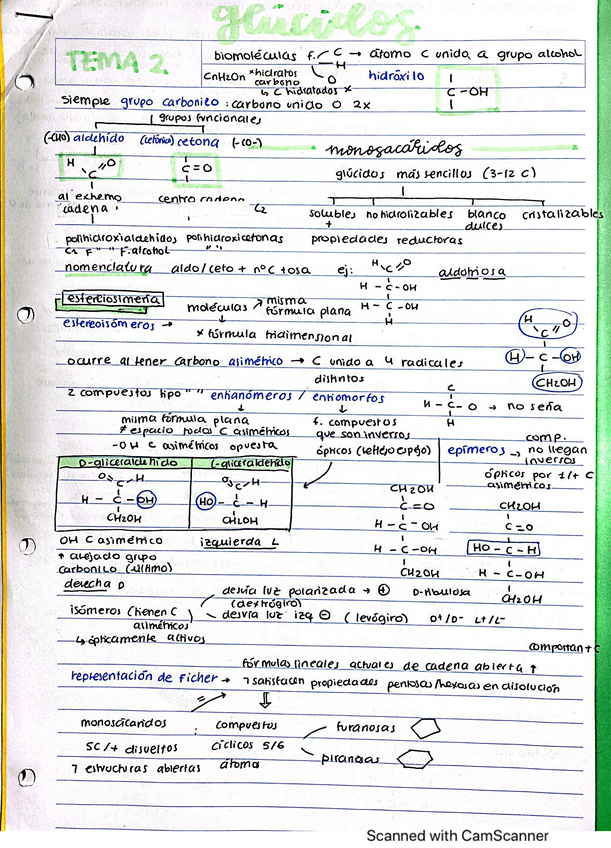 glúcidos
TEMA 2.
biomoléculas f. C → átomo C unido a grupo alcohol
H
O
CnH2On *hidratos carbono
↳ C hidratados *
hidróxilo
C - OH
siempre grupo carbonilo : carbono unido O 2x
grupos funcionales
(-CHO) aldehído (cetónico) cetona (-CO-)
monosacáridos
H C O
C = O
glúcidos más sencillos (3-12 C)
al extremo cadena
centro cadena
C2
solubles + no hidrolizables blanco dulces cristalizables
polihidroxialdehídos polihidroxicetonas
propiedades reductoras
F. alcohol
nomenclatura aldo/ceto + nºC + osa ej:
H C O
H - C - OH
H - C - OH
H
aldotriosa
estereoisomería
moléculas misma fórmula plana
estereoisómeros →
* fórmula tridimensional
H C O
H - C - OH
CH2OH
ocurre al tener carbono asimétrico → C unido a 4 radicales distintos
2 compuestos tipo " " enantiómeros / entiomorfos
C
H - C - O → no sería
H
misma fórmula plana
≠ espacio todos C asimétricos
-OH C asimétricos opuesta
f. compuestos
que son inversos
ópticos (reflejo espejo)
epímeros → comp. no llegan inversos
ópticos por 1/+ C asimétricos
D-gliceraldehído
O C H
H - C - OH
CH2OH
L-gliceraldehído
O C H
HO - C - H
CH2OH
CH2OH
C = O
H - C - OH
H - C - OH
CH2OH
D-ribulosa
CH2OH
C = O
HO - C - H
H - C - OH
CH2OH
OH C asimétrico
↑ alejado grupo
carbonilo (último)
derecha D
izquierda L
isómeros (tienen C asimétricos)
desvía luz polarizada → ⊕
(dextrógiro)
desvía luz izq ⊖ (levógiro) D+/D- L+/L-
↳ ópticamente activos
comportan + C
fórmulas lineales actuales de cadena abierta ↑
representación de ficher → ¬ satisfacen propiedades pentosas/hexosas en disolución
=
monosacáridos : compuestos
furanosas
5C/+ disueltos cíclicos 5/6
piranosas
¬ estructuras abiertas átomo
Scanned with CamScanner